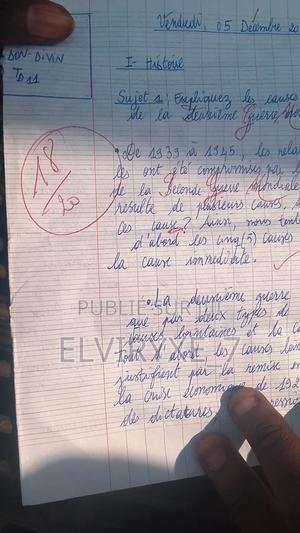 Vendredi, 05 Décembre 20
DON-DIVIN
TD 11
I- Histoire
Sujet 1: Expliquez les causes
de la deuxième Guerre Mon
18/20
De 1939 à 1945, les rela
ont été compromises par
de la Seconde guerre Mondiale
résulte de plusieurs causes.
ces causes? Ainsi, nous
d'abord les cinq (5) causes
la cause immédiate.
La deuxième guerre
PUBLIÉ SUR
que par deux types de
causes lointaines et la ca
ELVIR
Tout d'abord, les causes loin
justifient par la remise
la crise économique de 192
des dictatures